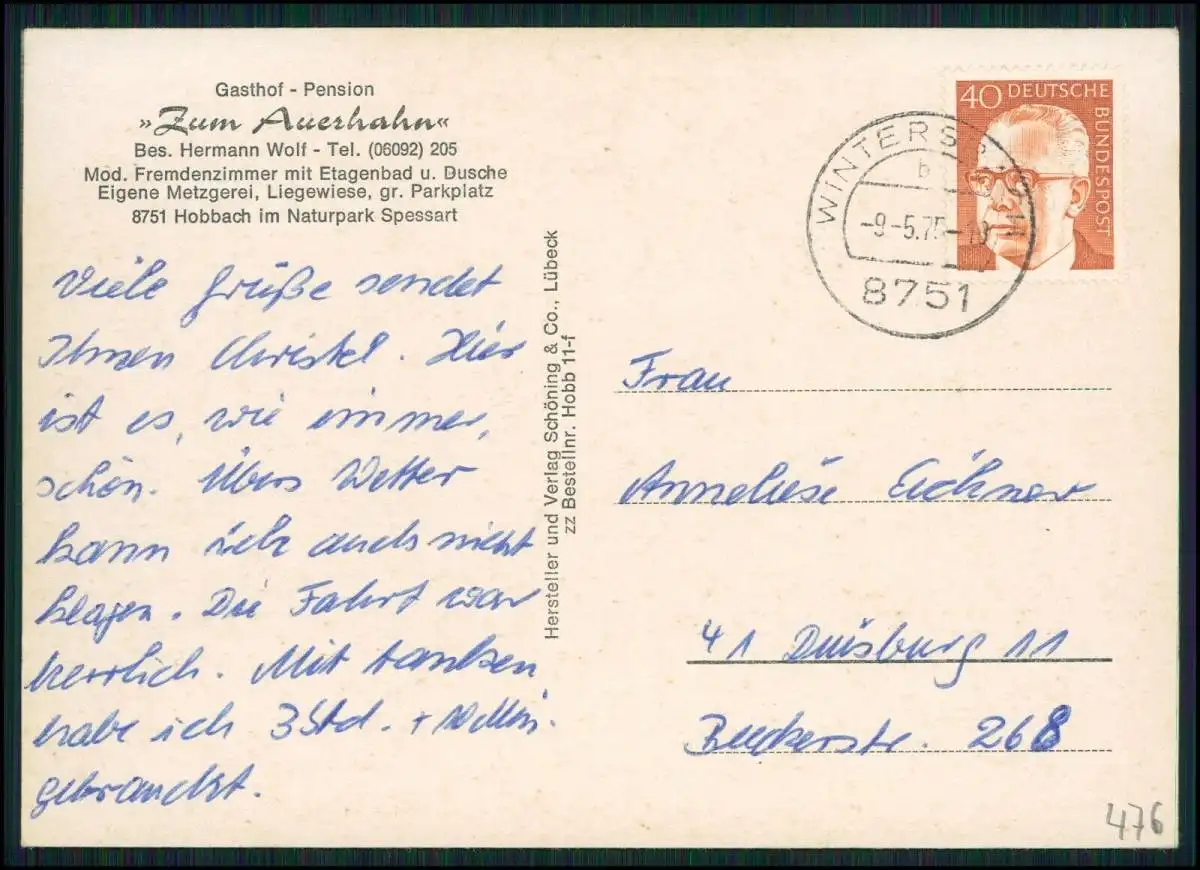 Gasthof - Pension
»Zum Auerhahn«
Bes. Hermann Wolf - Tel. (06092) 205
Mod. Fremdenzimmer mit Etagenbad u. Dusche
Eigene Metzgerei, Liegewiese, gr. Parkplatz
8751 Hobbach im Naturpark Spessart
Viele Grüße sendet
Ihnen Christel. Hier
ist es, wie immer,
schön. Übers Wetter
kann ich auch nicht
klagen. Die Fahrt war
herrlich. Mit tanken
habe ich 3 Std. + 10 Min.
gebraucht.
Hersteller und Verlag Schöning & Co., Lübeck
zz Bestellnr. Hobb 11-f
40 DEUTSCHE
BUNDESPOST
b
-9-5.75
8751
Frau
Anneliese Eichner
41 Duisburg 11
268
476